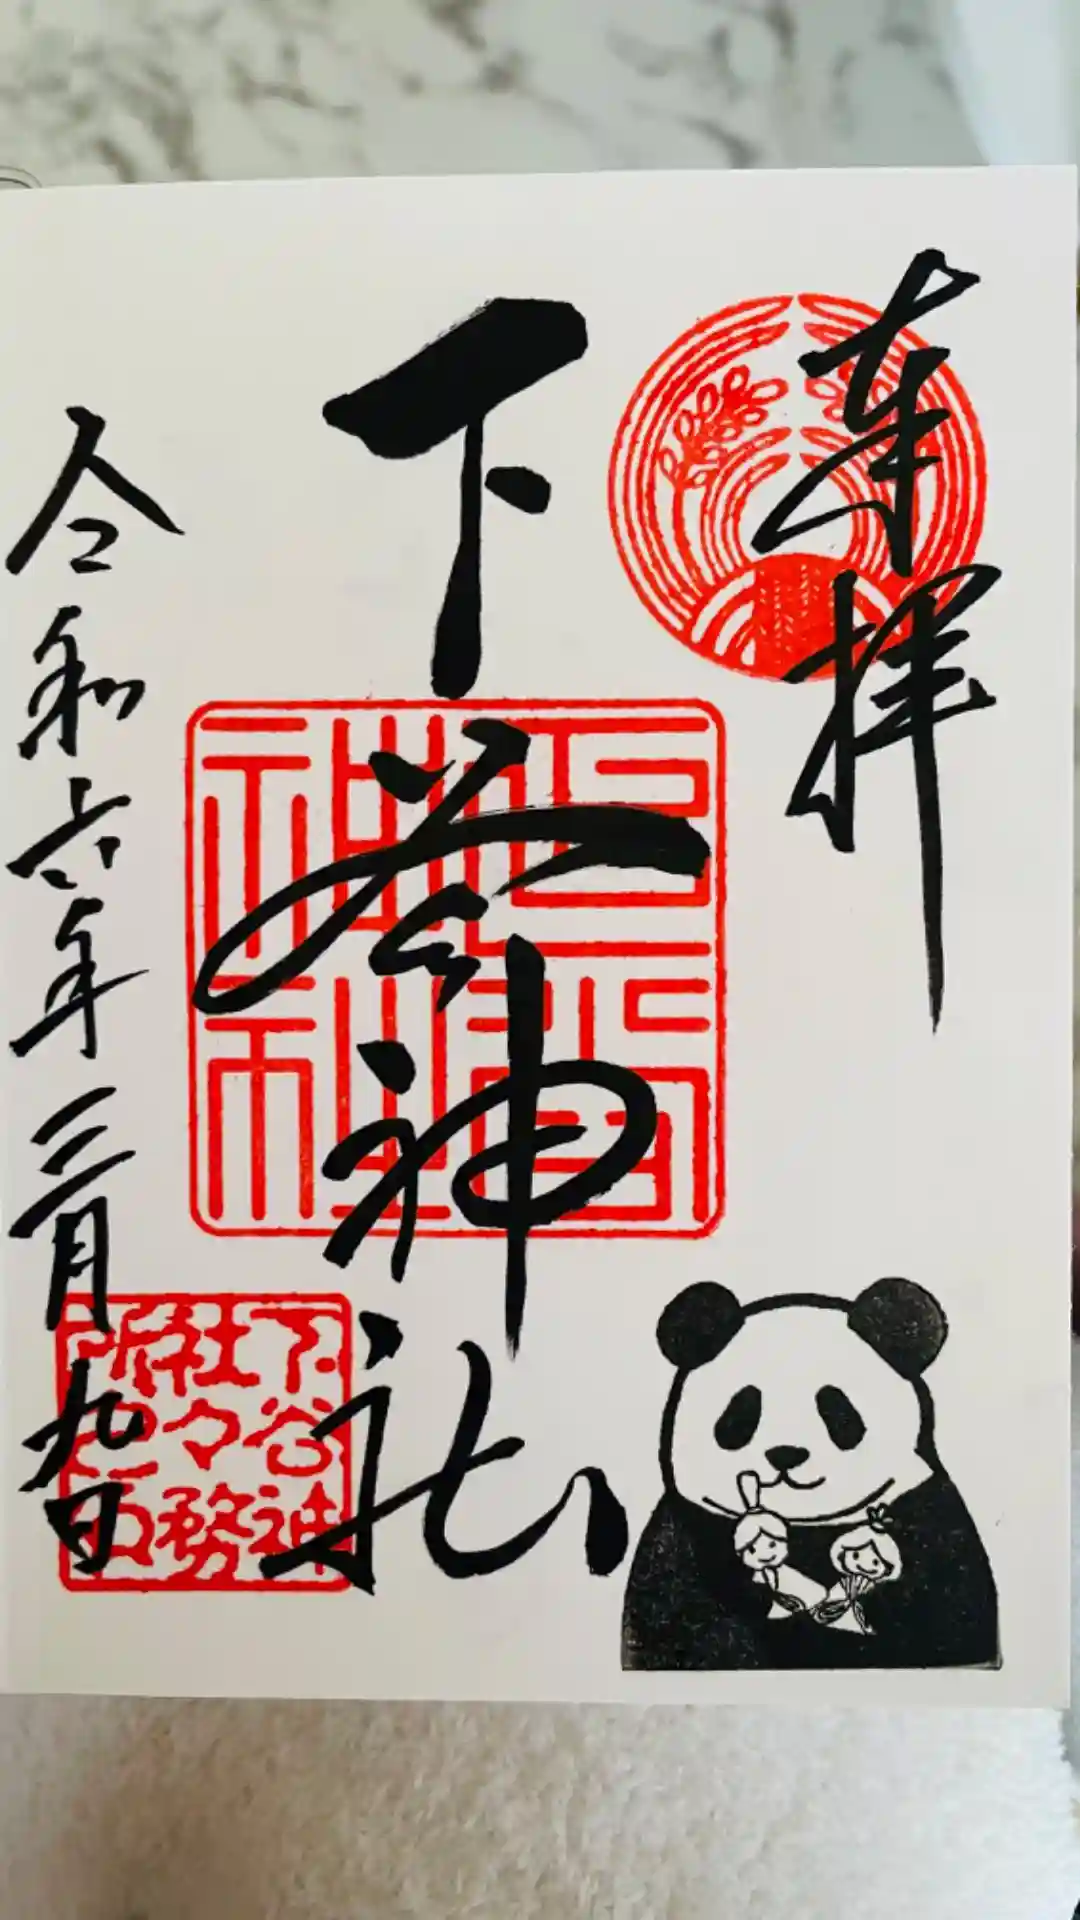 奉拝
下谷神社
下谷神社々務所之印
令和六年三月九日